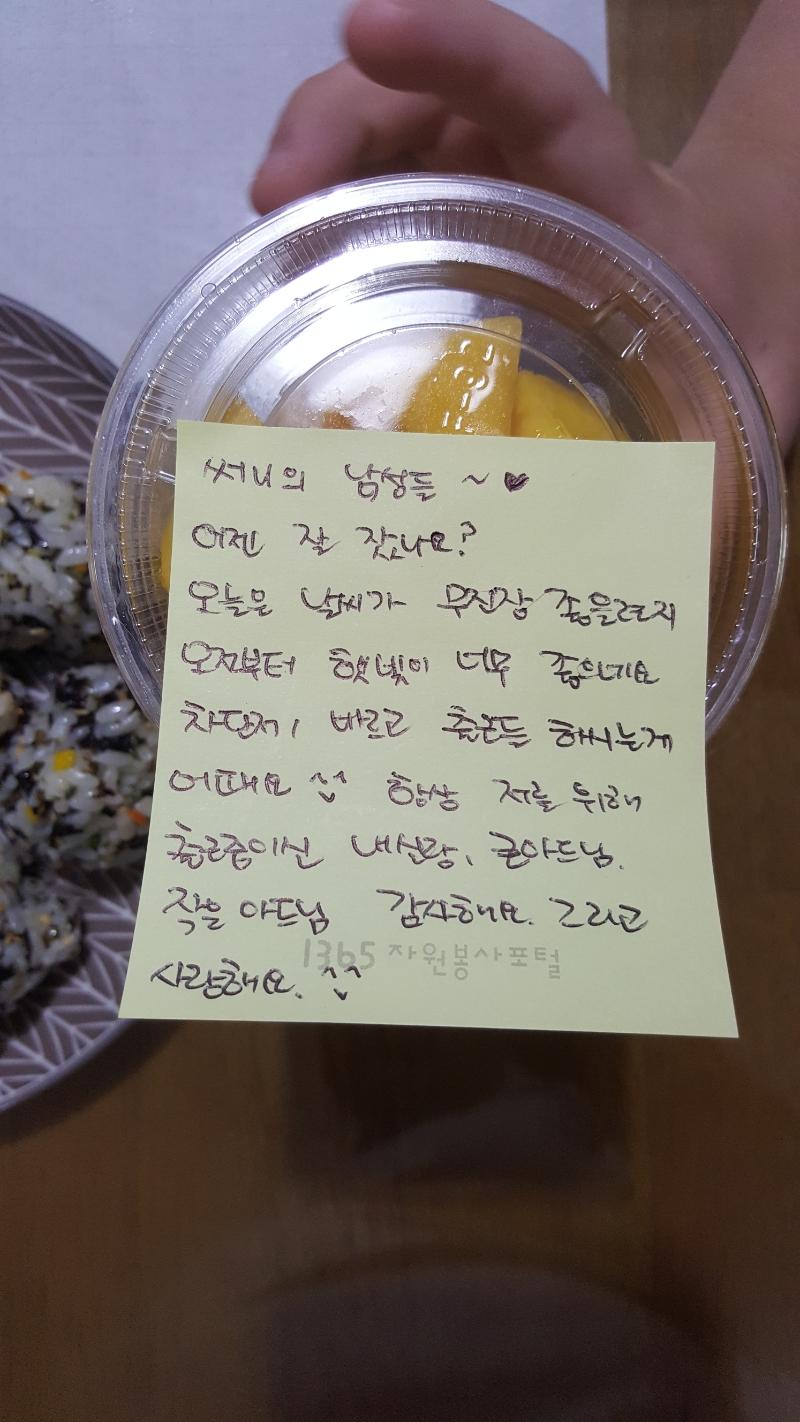 써니의 남성들 ~ ♥
어젠 잘 잤나요?
오늘은 날씨가 무진장 좋을려는지
오전부터 햇빛이 너무 좋으네요
차단제 바르고 출근들 하시는게
어때요 ^^ 항상 저를 위해
출근중이신 내신랑, 큰아드님,
작은 아드님 감사해요. 그리고
사랑해요. ^^
1365 자원봉사포털